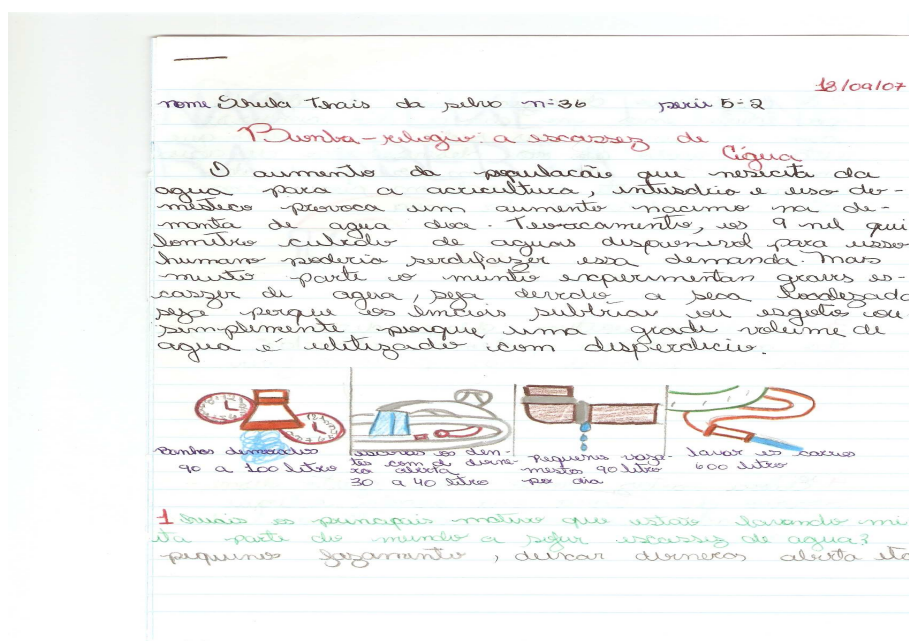 18/09/07
nome Sheila Tenais da silva n=36 serie 5=2
Bomba-relogio: a escassez de
água
O aumento da populacão que nesicita da
agua para a acricultura, intusdrio e uso do-
mestico provoca um aumento nacimo na de-
manta de agua doce. Teoocamento, os 9 mil qui
lomitro culrdo de aguas disponivol para usso
humano poderia serdifazer essa demanda. mas
muito parte o munto experimentan graves es-
caszer de agua, seja devido a seca locolezada
seja porque os
simplimente porque uma grade volume de
agua é utitizado com disperdicio.
Banhos demorados
90 a 100 litro
escovar os den-
tes com a torne-
ra aberta
30 a 40 litro
Pequenos vaza-
mestos 90 litro
por dia
lavar os carros
600 litro
1 Quais os principais motivo que estão levando mu
ita parte do mundo a sofrer escassez de agua?
pequinos fazamento, deixar torneras aberta etc